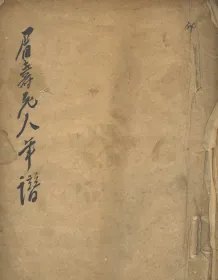 眉壽老人年譜